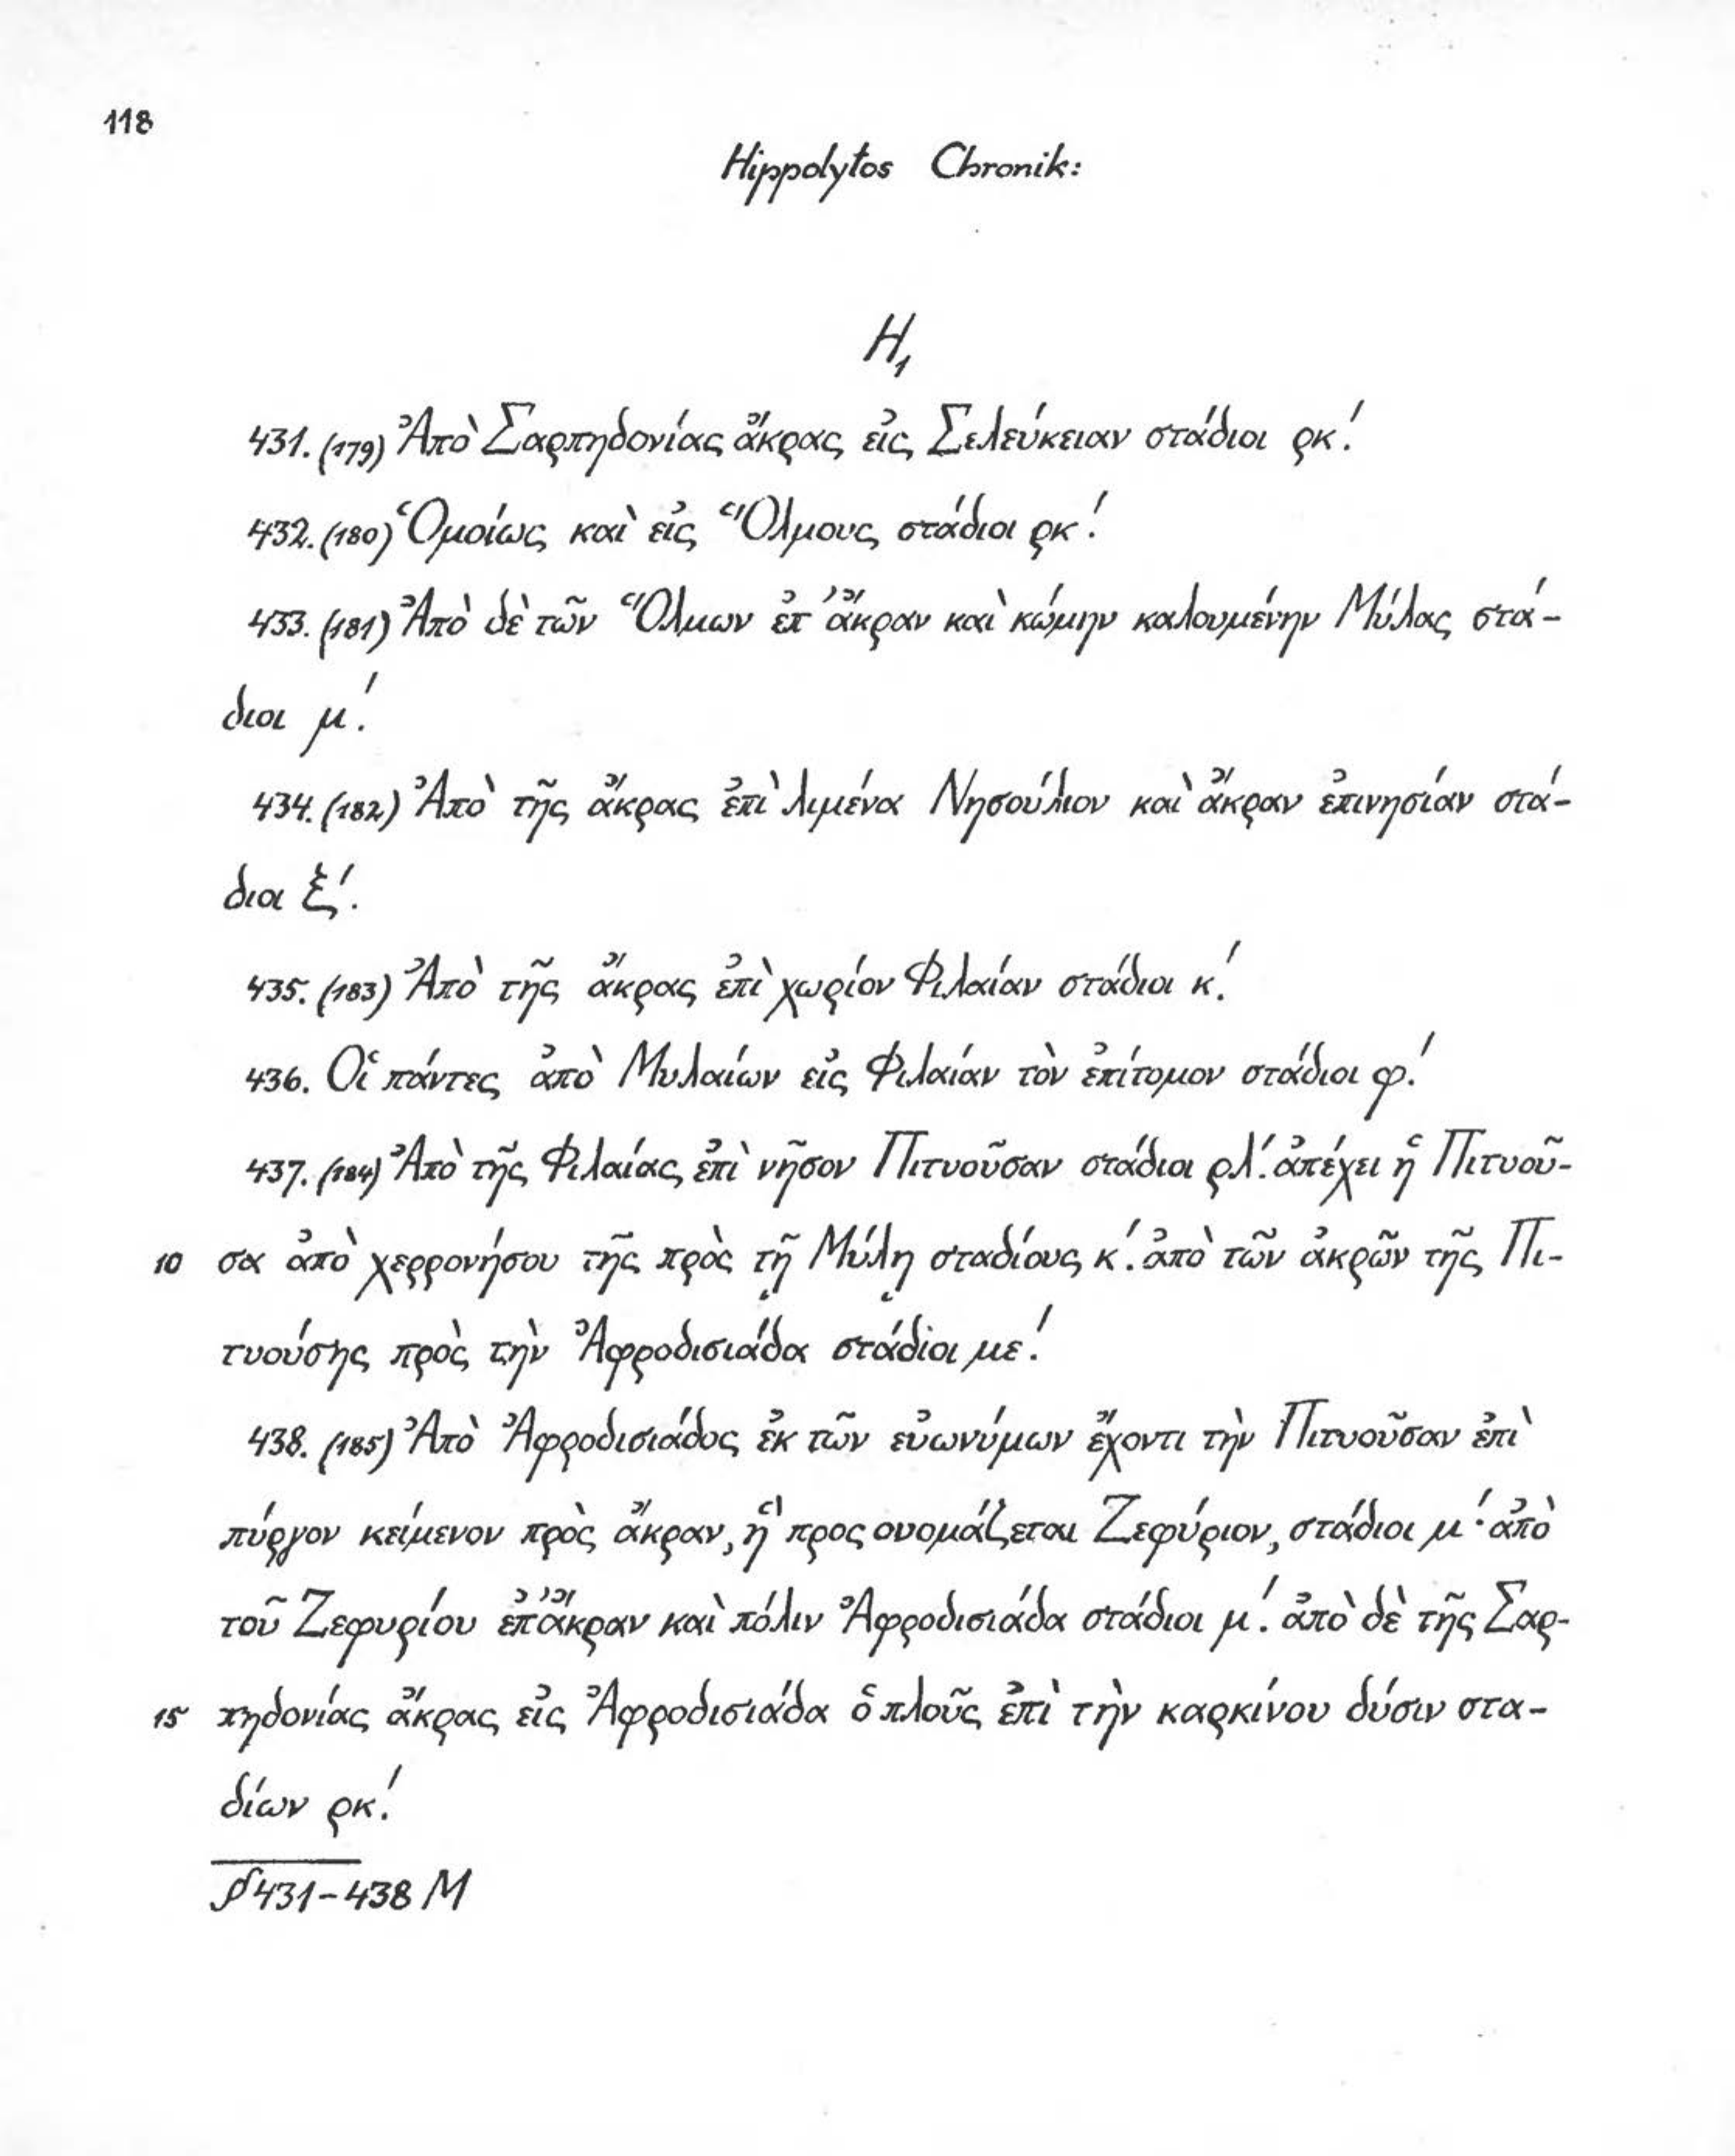 118
Hippolytos Chronik:
H₁
431. (179) Ἀπὸ Σαρπηδονίας ἄκρας εἰς Σελεύκειαν στάδιοι ρκ΄.
432. (180) Ὁμοίως καὶ εἰς Ὅλμους στάδιοι ρκ΄.
433. (181) Ἀπὸ δὲ τῶν Ὅλμων ἐπ᾽ ἄκραν καὶ κώμην καλουμένην Μύλας στά-
διοι μ΄.
434. (182) Ἀπὸ τῆς ἄκρας ἐπὶ λιμένα Νησούλιον καὶ ἄκραν ἐπινησίαν στά-
διοι ξ΄.
435. (183) Ἀπὸ τῆς ἄκρας ἐπὶ χωρίον Φιλαίαν στάδιοι κ΄.
436. Οἱ πάντες ἀπὸ Μυλαίων εἰς Φιλαίαν τὸν ἐπίτομον στάδιοι φ΄.
437. (184) Ἀπὸ τῆς Φιλαίας ἐπὶ νῆσον Πιτυοῦσαν στάδιοι ρλ΄. ἀπέχει ἡ Πιτυοῦ-
10 σα ἀπὸ χερρονήσου τῆς πρὸς τῇ Μύλῃ σταδίους κ΄. ἀπὸ τῶν ἀκρῶν τῆς Πι-
τυούσης πρὸς τὴν Ἀφροδισιάδα στάδιοι με΄.
438. (185) Ἀπὸ Ἀφροδισιάδος ἐκ τῶν εὐωνύμων ἔχοντι τὴν Πιτυοῦσαν ἐπὶ
πύργον κείμενον πρὸς ἄκραν, ἣ προς ονομάζεται Ζεφύριον, στάδιοι μ΄· ἀπὸ
τοῦ Ζεφυρίου ἐπ᾽ ἄκραν καὶ πόλιν Ἀφροδισιάδα στάδιοι μ΄. ἀπὸ δὲ τῆς Σαρ-
15 πηδονίας ἄκρας εἰς Ἀφροδισιάδα ὁ πλοῦς ἐπὶ τὴν καρκίνου δύσιν στα-
δίων ρκ΄.
§431-438 M